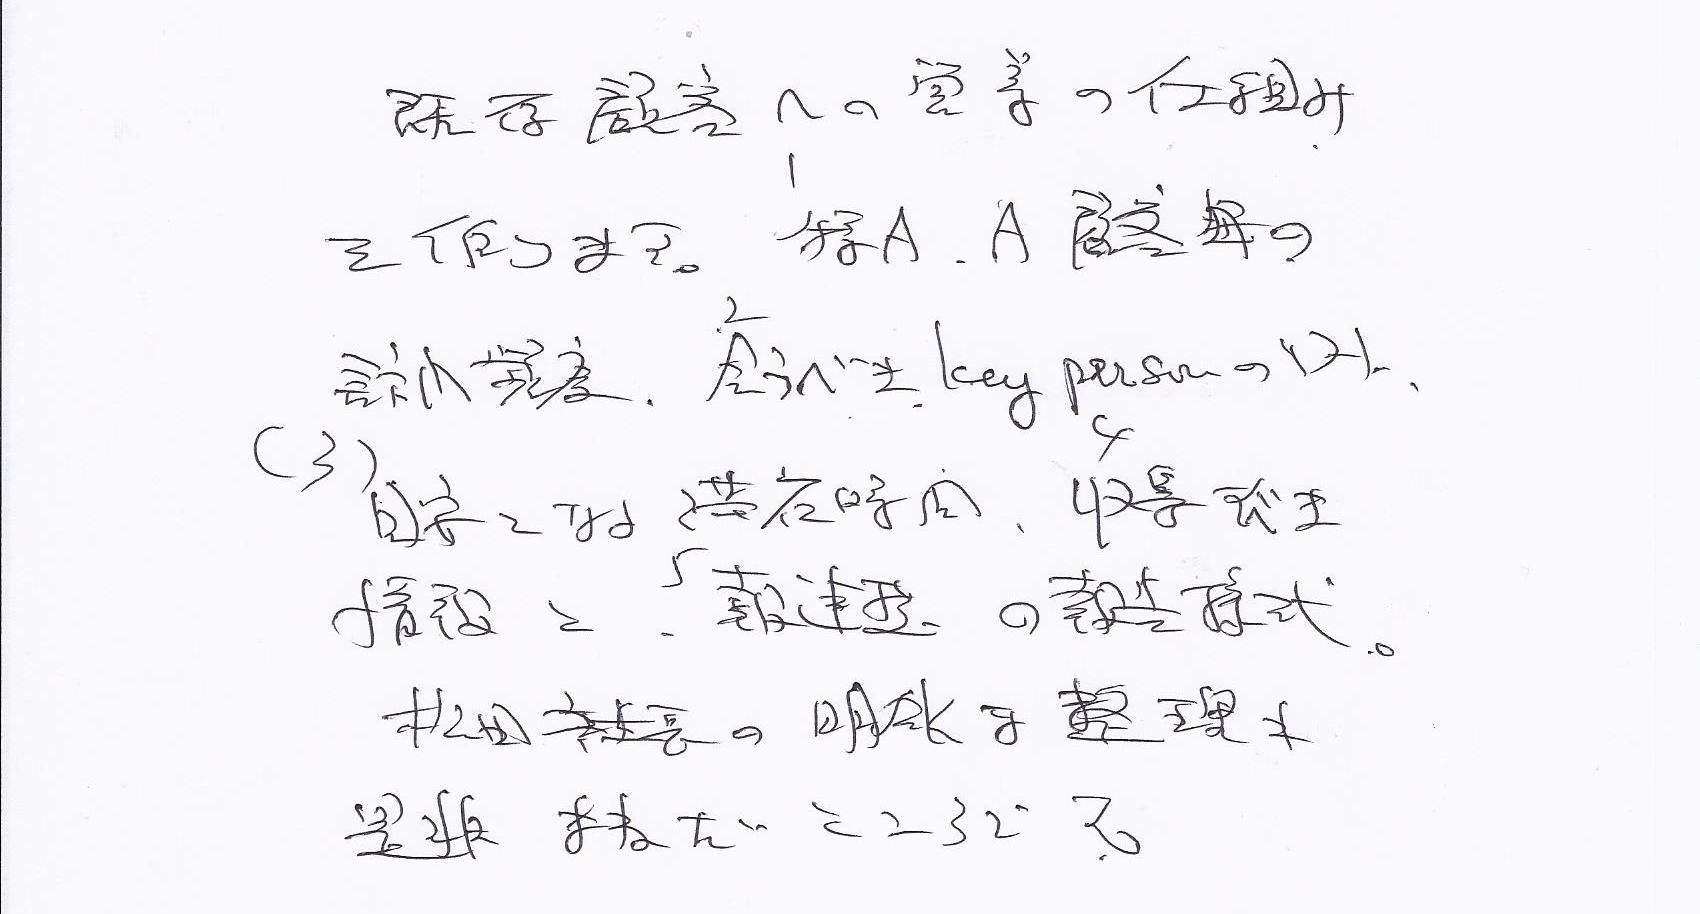 既存顧客への営業の仕組み
1
を作ります。特A、A顧客毎の
2
訪問頻度、会うべきkey personのリスト、
(3) 4
目安となる滞在時間、収集すべき
5
情報と、報連相の報告様式。
松田社長の明快な整理は
是非まねたいところです。